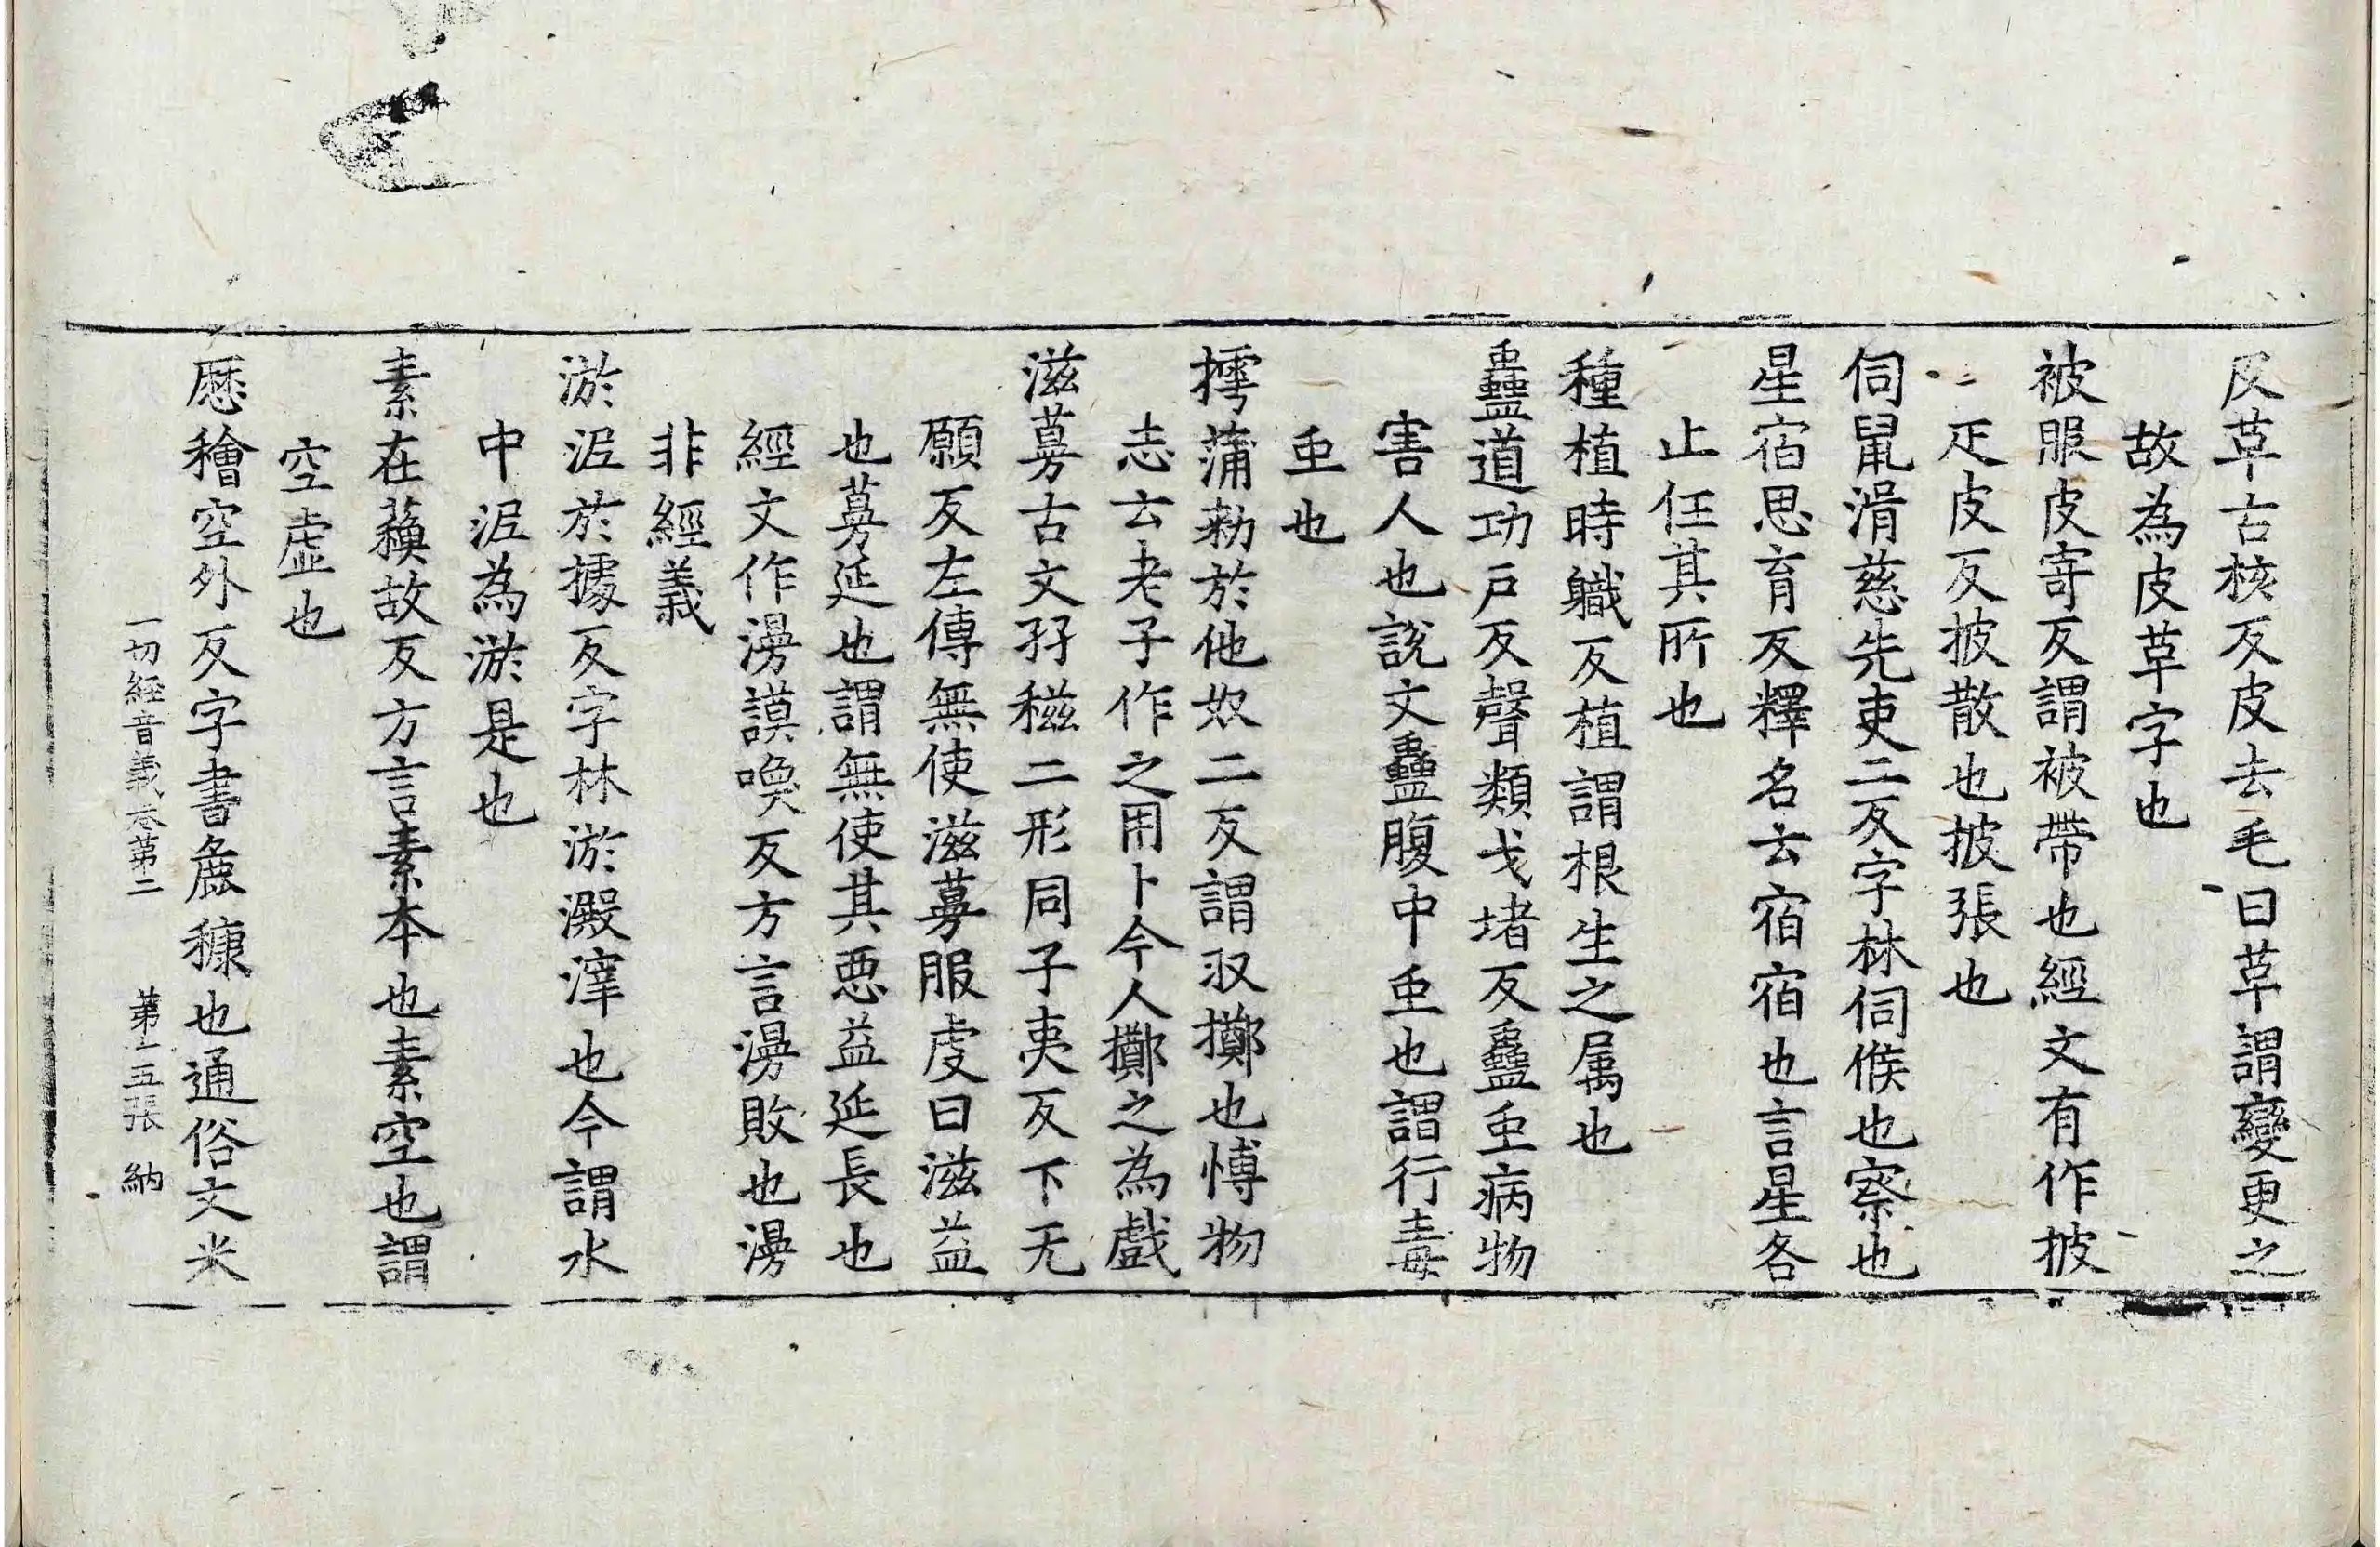 皮革古核反皮去毛曰革謂變更之
故為皮革字也
被服皮寄反謂被帶也經文有作披
疋皮反披散也披張也
伺鼠湑慈先吏二反字林伺候也察也
星宿思育反釋名云宿宿也言星各
止住其所也
種植時軄反植謂根生之属也
蠱道功戶反聲類弋堵反蠱䖝病物
害人也說文蠱腹中䖝也謂行毒
䖝也
摴蒲勑於他奴二反謂㕛擲也博物
志云老子作之用卜今人擲之為戲
滋蔓古文孖稵二形同子夷反下无
願反左傳無使滋蔓服虔曰滋益
也蔓延也謂無使其惡益延長也
經文作漫謨喚反方言漫敗也漫
非經義
淤泥於據反字林淤澱滓也今謂水
中泥為淤是也
素在蘓故反方言素本也素空也謂
空虛也
𠪱䅤空外反字書麁穅也通俗文米
一切經音義卷第二　第十五張　納